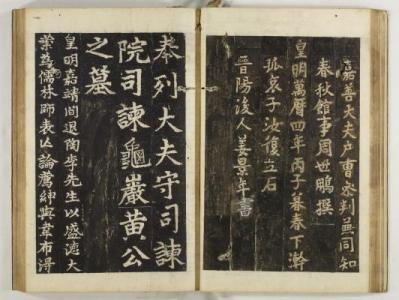 嘉善大夫戶曹叅判兼同知
春秋館事周世鵬撰
皇明萬曆四年丙子暮春下澣
孤哀子汝復立石
晉陽後人姜景年書
奉列大夫守司諫
院司諫龜巖黃公
之墓
皇明嘉靖間退陶李先生以盛德大
業爲儒林師表亾論薦紳與韋布淂